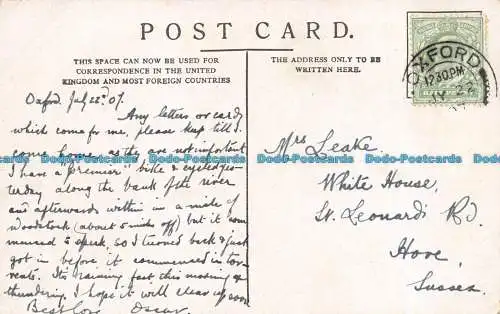 POST CARD.
THIS SPACE CAN NOW BE USED FOR
CORRESPONDENCE IN THE UNITED
KINGDOM AND MOST FOREIGN COUNTRIES
THE ADDRESS ONLY TO BE
WRITTEN HERE.
OXFORD
12 30 PM
JY 22
Oxford. July 22nd 07.
Any letters or cards
which come for me, please keep till I
come home, as the are not important
I have a "Premier" bike & cycled yes-
terday along the bank of the river
and afterwards within a mile of
Woodstock (about 8 miles off) but it com
menced to speck, so I turned back & just
got in before it commenced in tor-
rents. Its raining fast this morning &
thundering. I hope it will clear up soon
Best love Oscar
Mrs Leake.
White House,
St. Leonards Rd.
Hove,
Sussex.
Dodo-Postcards Dodo-Postcards Dodo-Postcards Dodo-Postcards Dodo-Postcards Dodo-Postcards